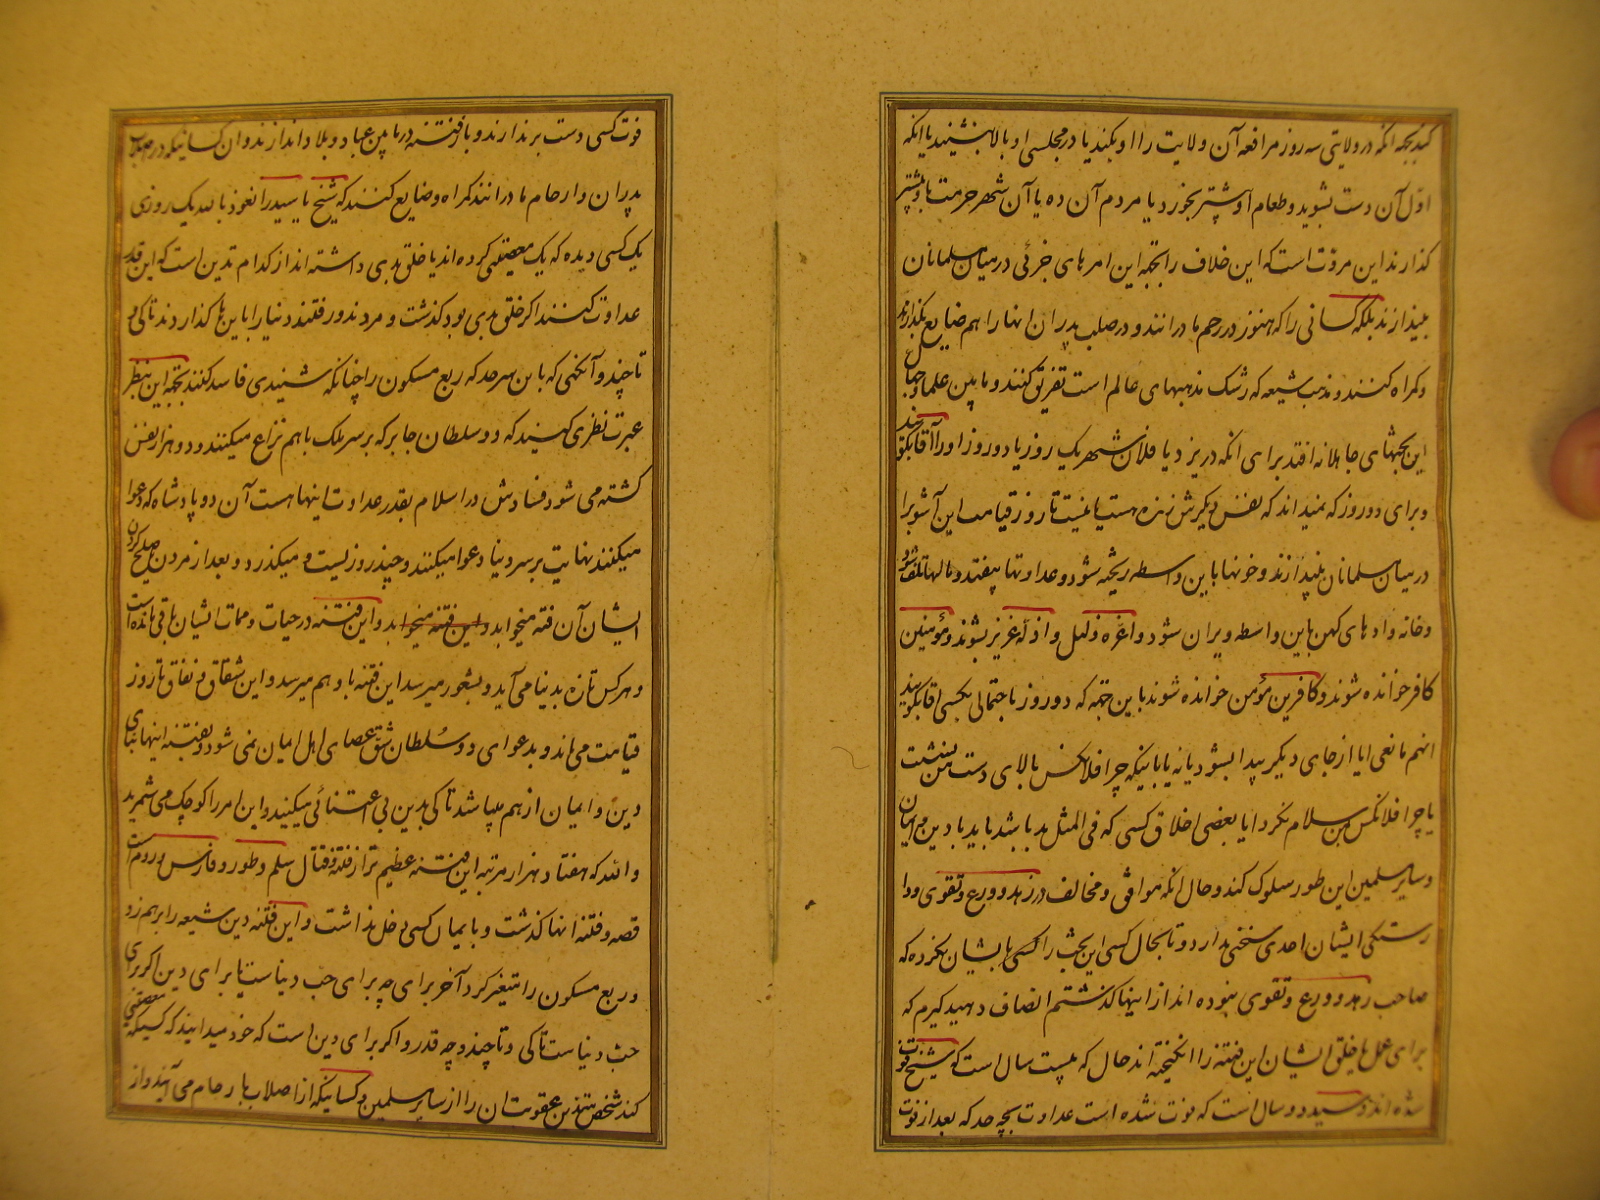 کنید بجهة انکه در ولایتی سه روز مرافعه آن ولایت را او بکند یا در مجلسی او بالا بنشیند یا انکه
اول آن دست بشوید و طعام او پیشتر بخورد یا مردم آن ده یا آن شهر حرمت باو بیشتر
کذارند این مروت است که این خلاف را بجهة این امرهای جزئی در میان مسلمانان
بیندازند بلکه کسانی را که هنوز در رحم مادرانند و در صلب پدران انها را هم ضایع بکذارند
و کمراه کنند و مذهب شیعه که رشک مذهبهای عالم است تفریق کنند و مابین علما و جهال
این بحثهای جاهلانه افتد برای انکه در یزد یا فلان شهر یک روز یا دو روز او را آقا بکویند
و برای دو روز که نمیداند که نفس دیکرش زنده هست یا نیست تا روز قیامت این آشوب را
در میان مسلمانان بیندازند و خونها باین واسطه ریخته شود و عداوتها بیفتد و مالها تلف شود
و خانه وادهای کهن باین واسطه ویران شود و اعزه ذلیل و اذله عزیز بشوند و مؤمنین
کافر خوانده شوند و کافرین مؤمن خوانده شوند باین جهة که دو روز باحتمالی بکسی اقا بکویند
انهم مانعی ایا از جای دیکر پیدا بشود یا نه یا باینکه چرا فلانکس بالای دست من نشست
یا چرا فلانکس بمن سلام نکرد ایا بعضی اخلاق کسی که فی المثل بد باشد باید با دین و ایمان
و سایر مسلمین این طور سلوک کند و حال انکه موافق و مخالف در زهد و ورع و تقوی و وا
رستکی ایشان احدی سخنی ندارد و تا بحال کسی این بحث را کسی بایشان نکرده که
صاحب زهد و ورع و تقوی نبوده اند از اینها کذشتم انصاف دهید کیرم که
برای عمل یا خلق ایشان این فتنه را انکیخته اند حال که بیست سال است که شیخ فوت
شده اند و سید دو سال است که فوت شده است عداوت بچه حد که بعد از فوت
فوت کسی دست برندارند و باز فتنه در مابین عباد و بلاد اندازند و ان کسانیکه در صلب
پدران و ارحام مادرانند کمراه و ضایع کنند که شیخ یا سید را نعوذ بالله یک روزی
یک کسی دیده که یک معصیتی کرده اند یا خلق بدی داشته اند از کدام تدین است که این قدر
عداوت کنند اکر خلق بدی بود کذشت و مردند و رفتند دنیا را باین ها کذاردند تا کی و
تا چند و آنکهی که باین سرحد که ربع مسکون را چنانکه شنیدی فاسد کنند بجهة این بنظر
عبرت نظری کنید که دو سلطان جابر که بر سر ملک با هم نزاع میکنند و دو هزار نفس
کشته می شود فسادش در اسلام بقدر عداوت اینها هست آن دو پادشاه که دعوا
میکنند نهایت بر سر دنیا دعوا میکنند و چند روز نیست و میکذرد و بعد از مردن و صلح کردن
ایشان آن فتنه میخوابد و این فتنه میخوابد و این فتنه در حیات و ممات ایشان باقی مانده است
و هر کس تازه بدنیا می آید و بشعور میرسد این فتنه باو هم میرسد و این شقاق و نفاق تا روز
قیامت می ماند و بدعوای دو سلطان شق عصای اهل ایمان نمی شود و بفتنه اینها بنای
دین و ایمان از هم بپاشد تا کی بدین بی اعتنائی میکنید و این امر را کوچک می شمرید
والله که هفتاد هزار مرتبه این فتنه عظیم تر از فتنه و قتال سلم و طور و فارس و روم است
قصه و فتنه انها کذشت و بایمان کسی دخل نداشت و این فتنه دین شیعه را برهم زد
و ربع مسکون را متغیر کرد آخر برای چه برای حب دنیاست یا برای دین اکر برای
حب دنیاست تا کی و تا چند و چه قدر و اکر برای دین است که خود میدانید که کسیکه معصیتی
کند شخص متدین عقوبت ان را از سایر مسلمین و کسانیکه از اصلاب بارحام می آیند و از